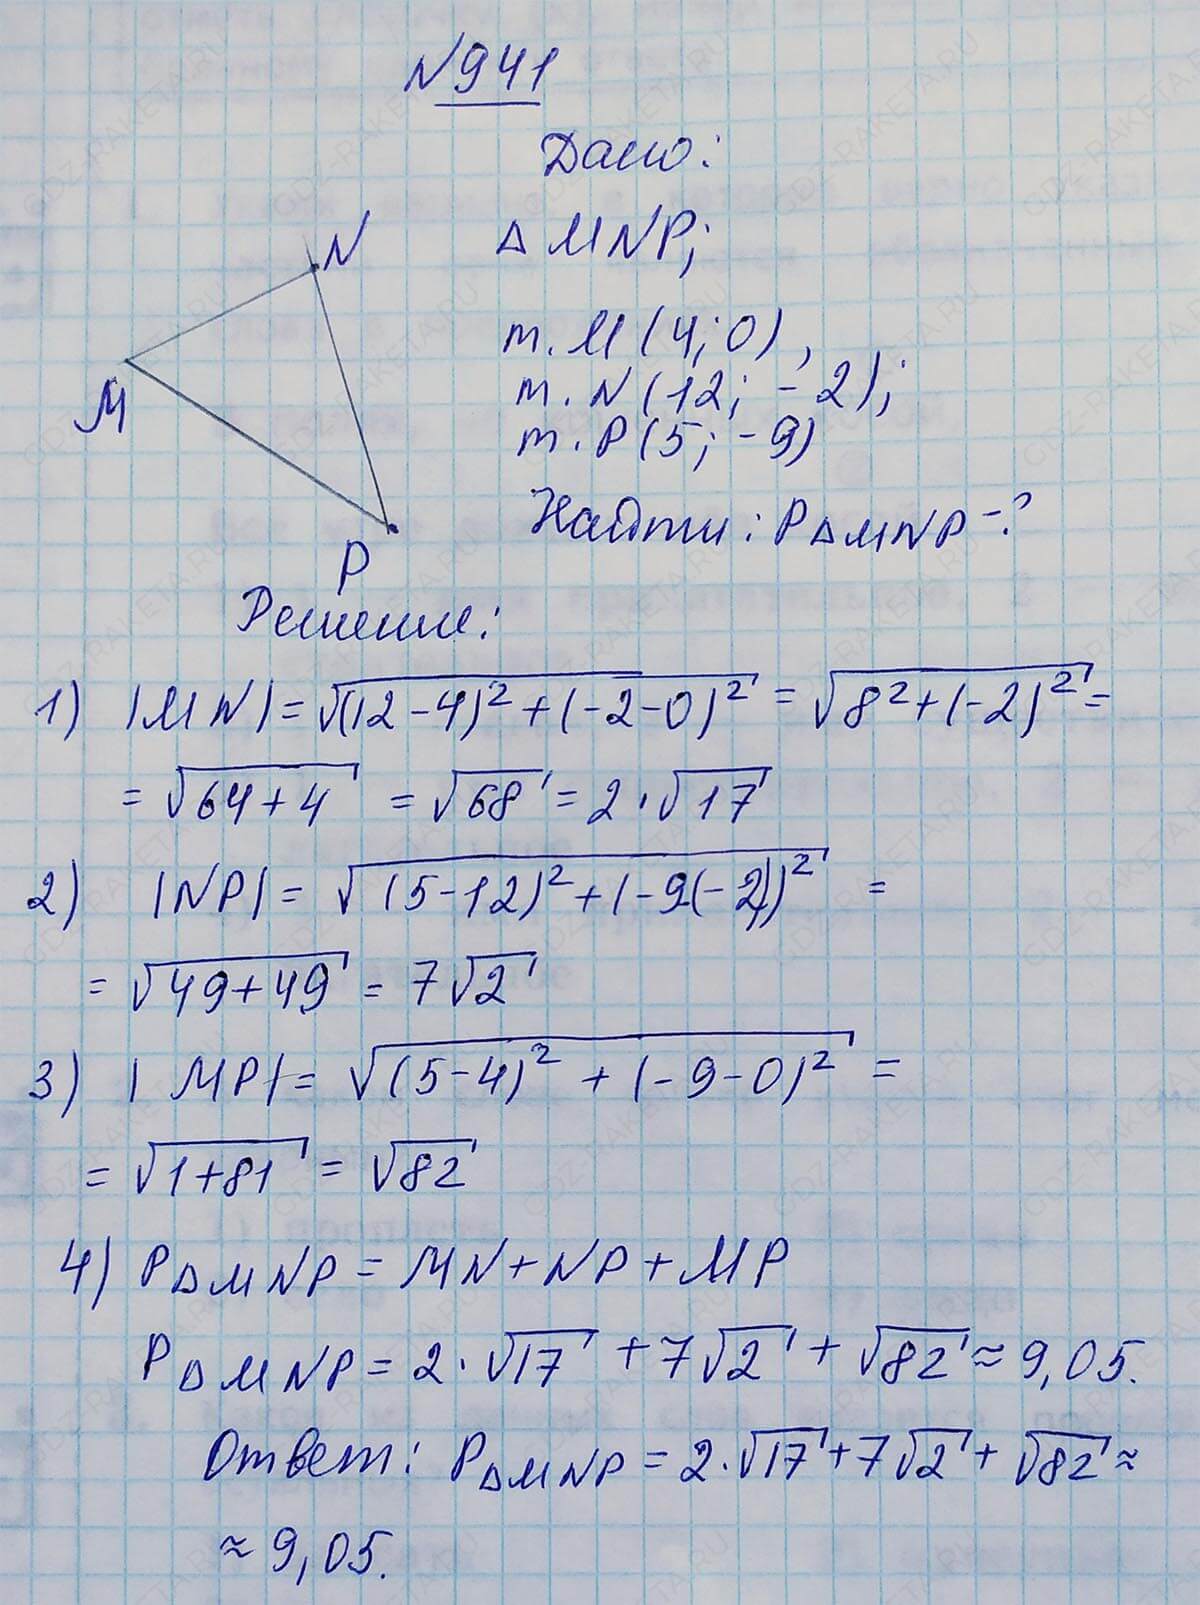 №941
Дано:
N
M
P
△MNP;
т. M (4; 0),
т. N (12; -2);
т. P (5; -9)
Найти: P△MNP -?
Решение:
1) |MN| = √((12-4)² + (-2-0)²) = √(8² + (-2)²) =
= √(64+4) = √68 = 2·√17
2) |NP| = √((5-12)² + (-9(-2))²) =
= √(49+49) = 7√2
3) |MP| = √((5-4)² + (-9-0)²) =
= √(1+81) = √82
4) P△MNP = MN + NP + MP
P△MNP = 2·√17 + 7√2 + √82 ≈ 9,05.
Ответ: P△MNP = 2·√17 + 7√2 + √82 ≈
≈ 9,05.
GDZ-RAKETA.RU